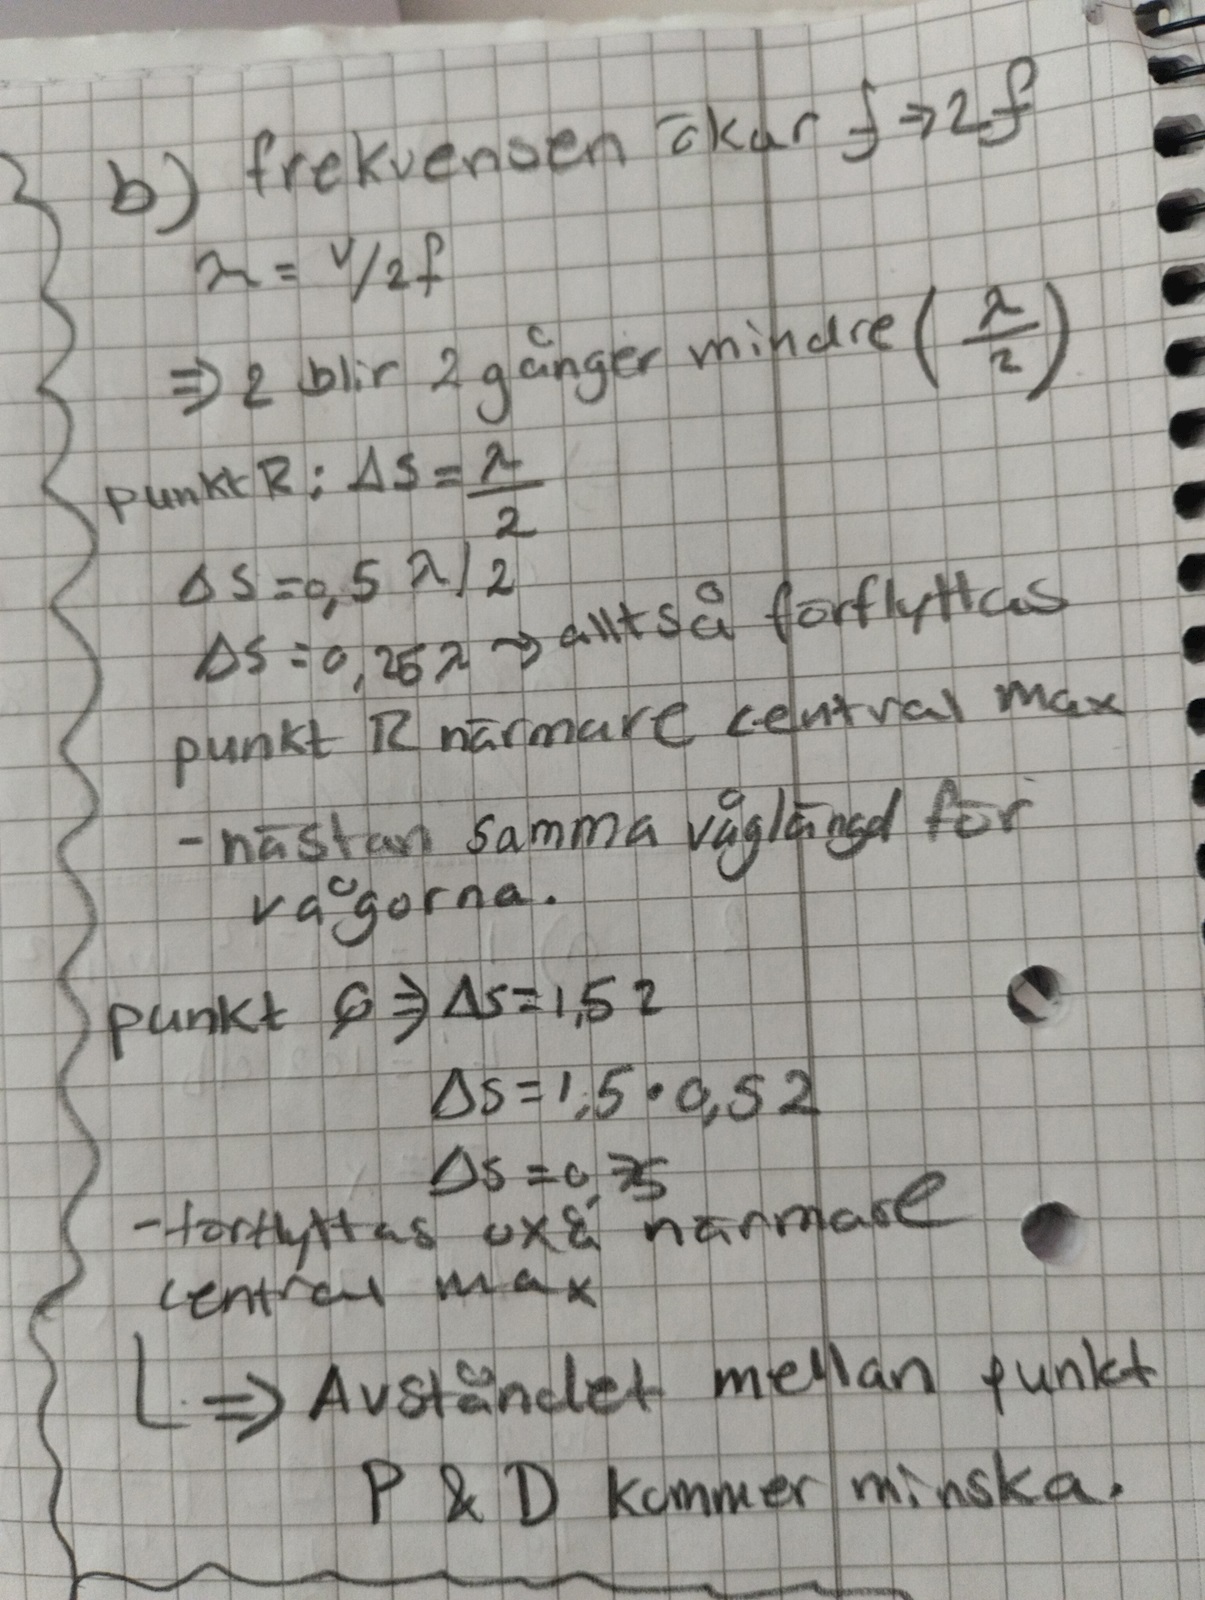 b) frekvensen ökar f ⇒ 2f
λ = v/2f
⇒ λ blir 2 gånger mindre (λ/2)
punkt R: Δs = λ/2
Δs = 0,5 λ/2
Δs = 0,25λ → alltså förflyttas
punkt R närmare central max
- nästan samma våglängd för
vågorna.
punkt Q ⇒ Δs = 1,5λ
Δs = 1,5 · 0,5λ
Δs = 0,75
- förflyttas oxå närmare
central max
L ⇒ Avståndet mellan punkt
P & D kommer minska.